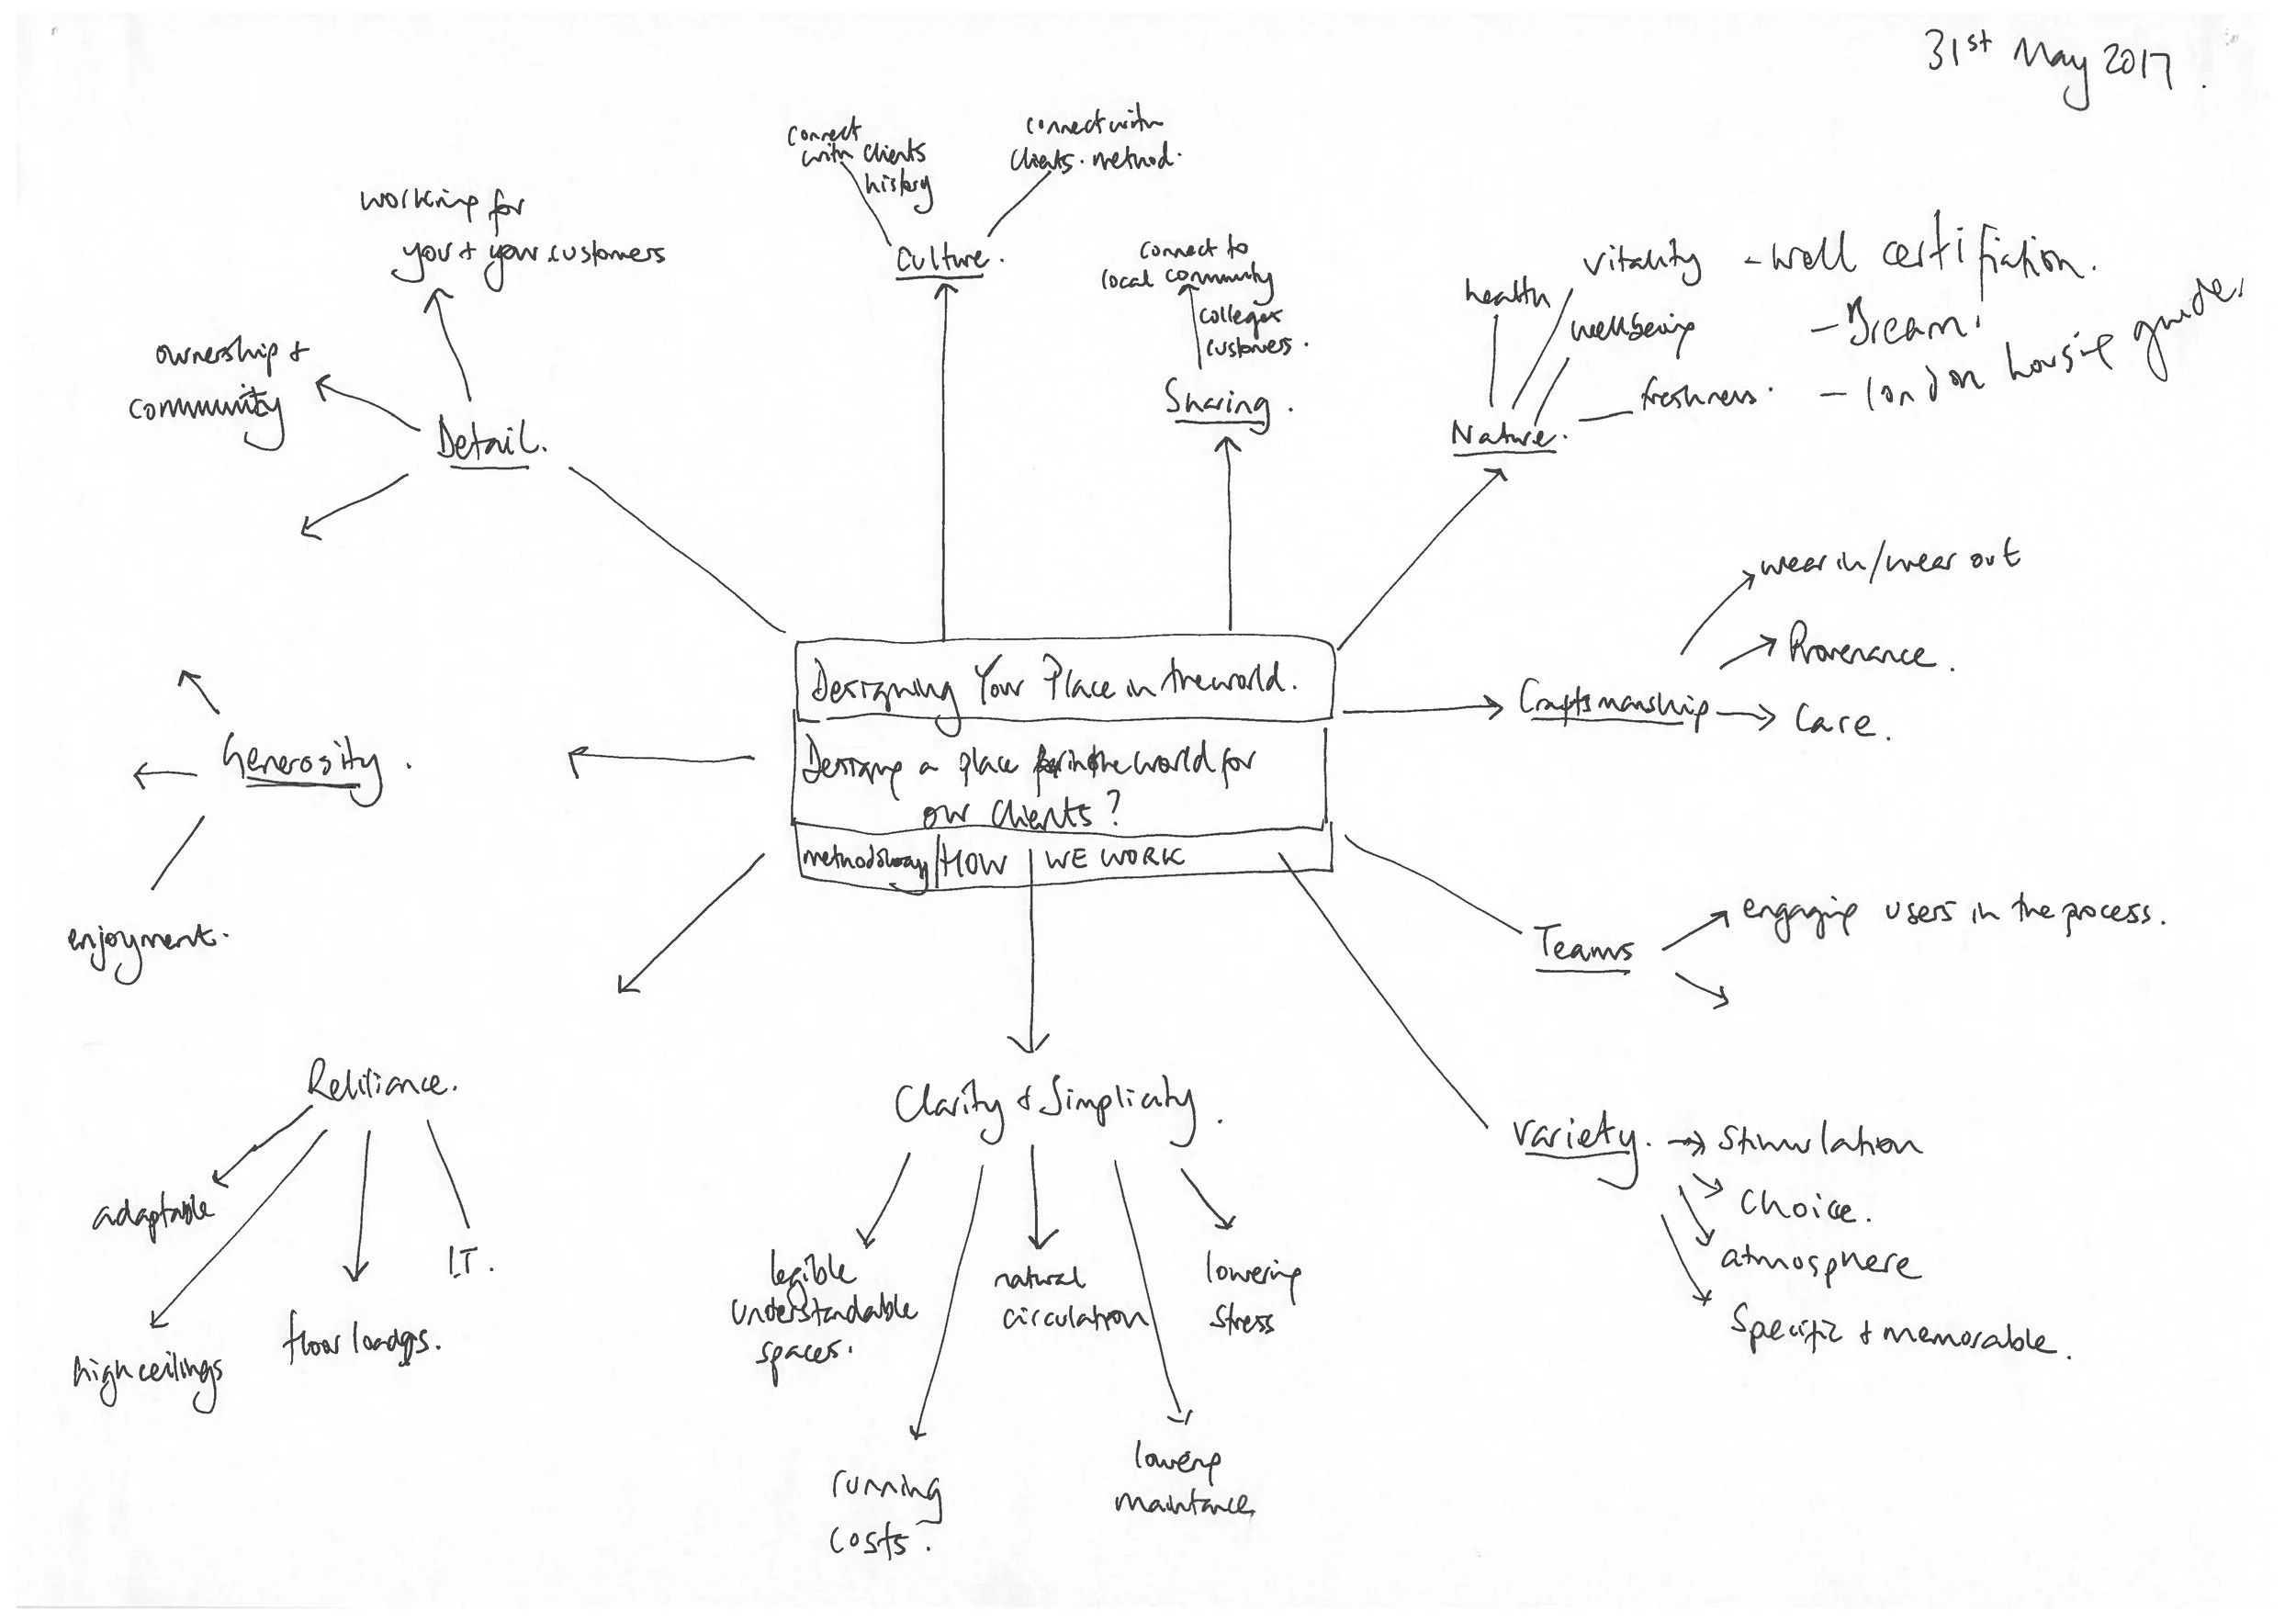 31st May 2017.
connect
with clients
history
connect with
clients. method.
Culture.
working for
you + your customers
ownership +
community
Detail.
connect to
local community
colleges
customers.
Sharing.
health
vitality - well certifiation.
wellbeing
- Bream!
freshness.
- london housing guide.
Nature.
wear in/wear out
Provenance.
Craftsmanship
Care.
Designing Your Place in the world.
Designing a place in the world for
our clients?
methodology HOW WE WORK
Generosity.
enjoyment.
Teams
engaging users in the process.
Variety.
Stimulation
Choice.
atmosphere
Specific + memorable.
Clarity + Simplicity.
legible
understandable
spaces.
running
costs.
natural
circulation
lowering
maintance
lowering
stress
Reliliance.
adaptable
high ceilings
floor loadgs.
I.T.